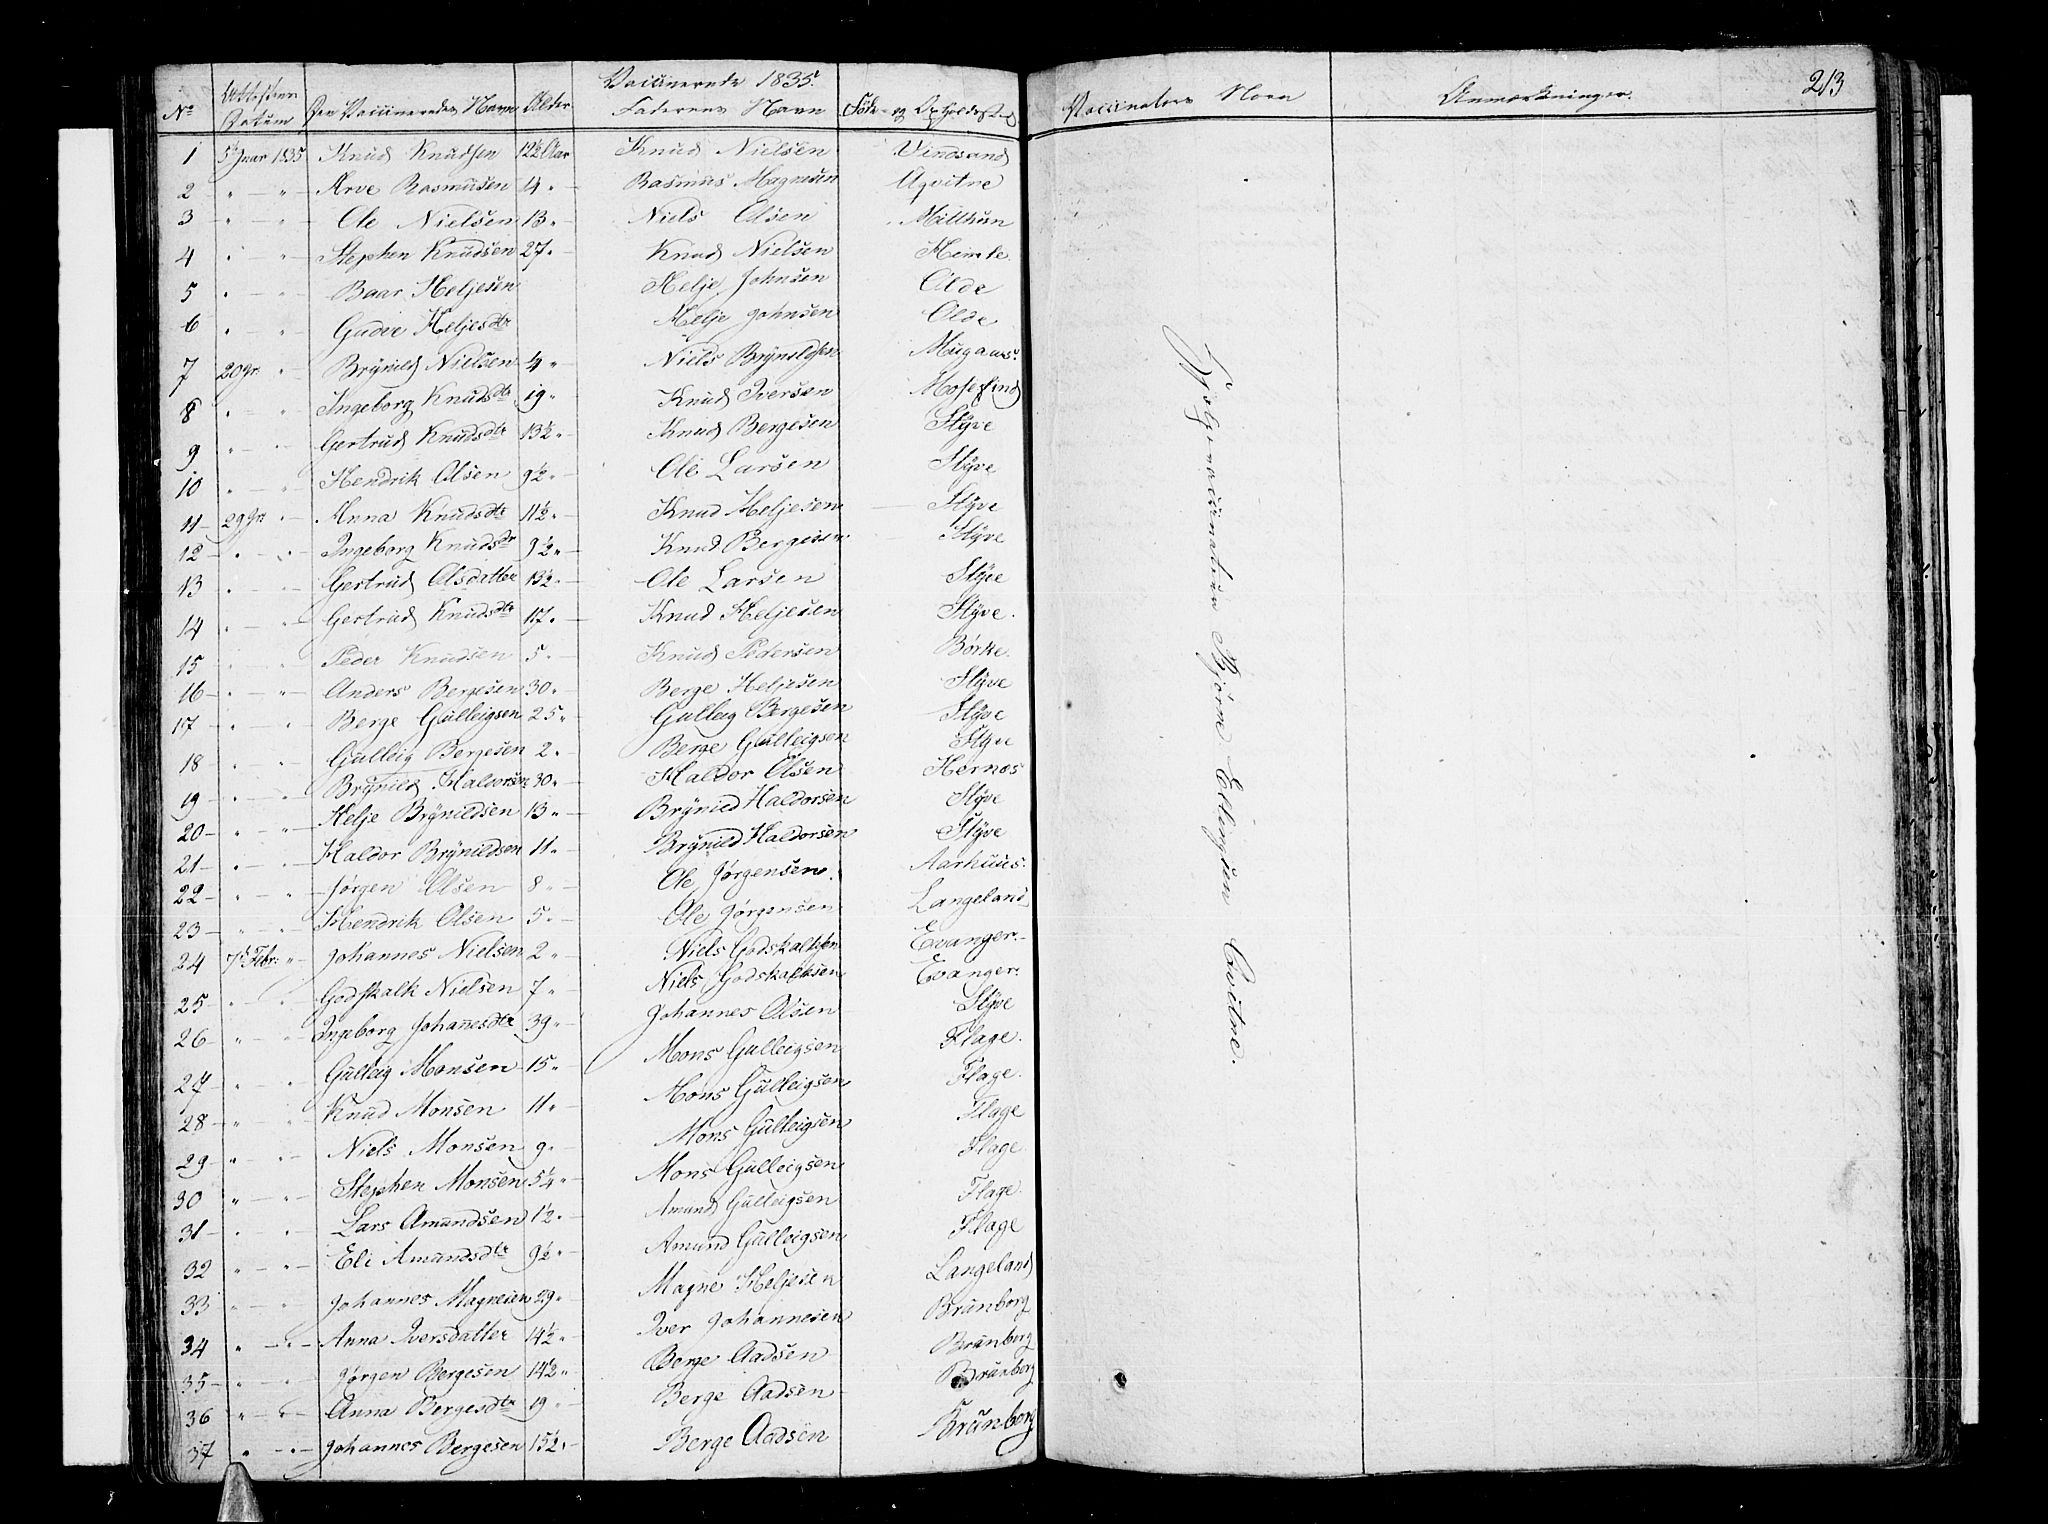 Vaccinerede 1835.
No Attestens Datum Den Vaccineredes Navn Alder Faderens Navn Føde- og Opholdssted Vaccinators Navn Anmærkninger. 213
1 5 Januar 1835 Knud Knudsen 12½ Aar Knud Nielsen
2 " — " Arve Rasmusen 14 " — Rasmus Magnesen Qvitne
3 " — " Ole Nielsen 13 " — Niels Olsen Mitthun
4 " — " Stephen Knudsen 27 " Knud Nielsen Himle
5 " — " Baar Heljesen Helje Johnsen Olde
6 " " Gudve Heljesdtr Helje Johnsen Olde
7 20 Jr. " Brynild Nielsen 4 " Niels Brynildsen Mugaas.
8 " — " Ingeborg Knudsdtr 19 " Knud Iversen Mosefind
9 " — " Gertrud Knudsdtr 13½ " Knud Bergesen Styve
10 " — " Hendrik Olsen 9½ " Ole Larsen Styve
11 29 Jr. " Anna Knudsdtr 11½ " Knud Heljesen Styve
12 " — " Ingeborg Knudsdtr 9½ " Knud Bergesen Styve
13 " — " Gertrud Olsdatter 13½ " Ole Larsen Styve
14 " — " Gertrud Knudsdtr 17 " Knud Heljesen Styve.
15 " " Peder Knudsen 5 " Knud Pedersen Börke.
16 " — " Anders Bergesen 30 " Berge Heljesen Styve
17 " " Berge Gulleigsen 25 " Gulleig Bergesen Styve
18 " — " Gulleig Bergesen 2 " Berge Gulleigsen Styve
19 " — " Brynild Haldorsen 30 " Haldor Olsen Hernæs
20 " — " Helje Brynildsen 13 " Brynild Haldorsen Styve
21 " — " Haldor Brynildsen 11 " Brynild Haldorsen Styve
22 " — " Jørgen Olsen 8 " Ole Jørgensen Aarhuus.
23 " — " Hendrik Olsen 5 " Ole Jørgensen Langeland
24 7 Febr: " Johannes Nielsen 2 " Niels Godskalksen Evanger.
25 " " Godskalk Nielsen 7 " Niels Godskalksen Evanger.
26 " — " Ingeborg Johannesdtr 39 " Johannes Olsen Styve
27 " " Gulleig Monsen 15 " Mons Gulleigsen Flage.
28 " — " Knud Monsen 11 " Mons Gulleigsen Flage.
29 " — " Niels Monsen 9 " Mons Gulleigsen Flage
30 " — " Stephen Monsen 5¼ " Mons Gulleigsen Flage
31 " " Lars Amundsen 1½ " Amund Gulleigsen Flage.
32 " — " Eli Amundsdtr 9½ " Amund Gulleigsen Flage
33 " — " Johannes Magnesen 29 " Magne Heljesen Langeland
34 " — " Anna Iversdatter 14½ " Iver Johannesen Brunborg
35 " " Jørgen Bergesen 14½ " Berge Aadsen Brunborg
36 " — " Anna Bergesdtr 19 " Berge Aadsen Brunborg
37 " — " Johannes Bergesen 15½ " Berge Aadsen Brunborg
Bjørne Ellingsen Qvitne.